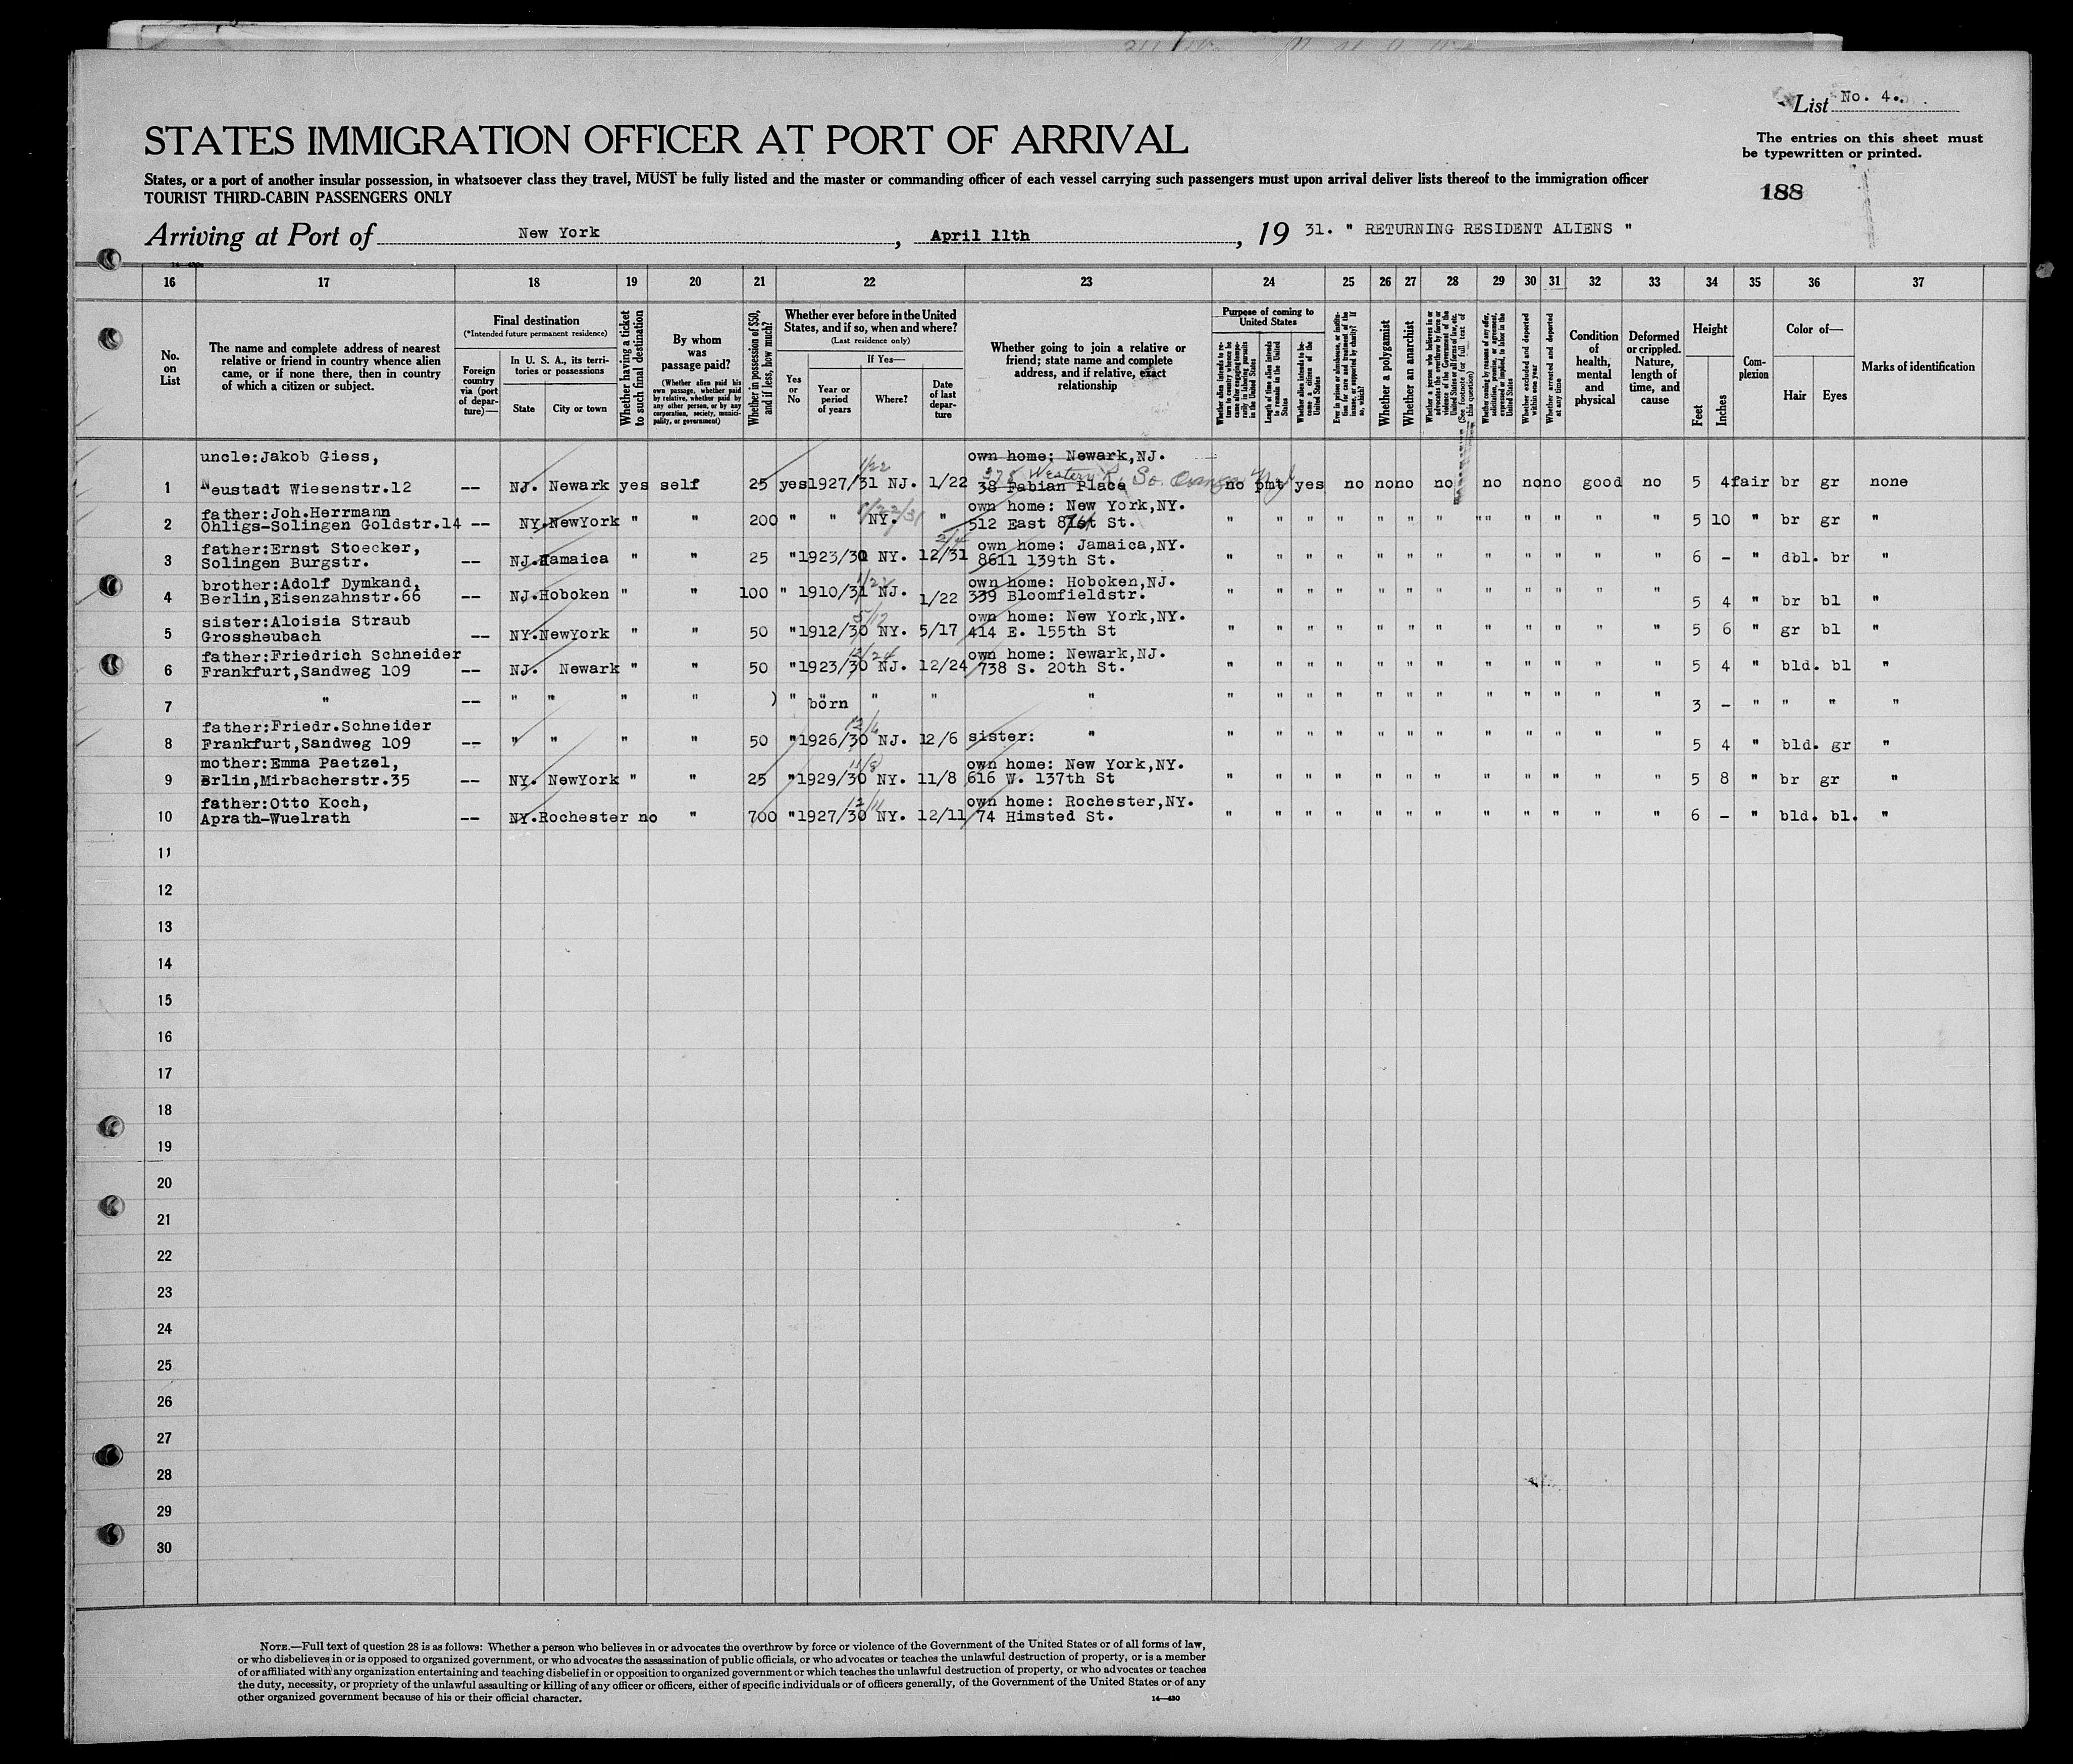 List No. 4.
STATES IMMIGRATION OFFICER AT PORT OF ARRIVAL
The entries on this sheet must
be typewritten or printed.
States, or a port of another insular possession, in whatsoever class they travel, MUST be fully listed and the master or commanding officer of each vessel carrying such passengers must upon arrival deliver lists thereof to the immigration officer
TOURIST THIRD-CABIN PASSENGERS ONLY
188
Arriving at Port of New York, April 11th, 19 31. " RETURNING RESIDENT ALIENS "
16 17 18 19 20 21 22 23 24 25 26 27 28 29 30 31 32 33 34 35 36 37
No. on List
The name and complete address of nearest relative or friend in country whence alien came, or if none there, then in country of which a citizen or subject.
Final destination
(*Intended future permanent residence)
Foreign country via (port of departure)—
In U. S. A., its territories or possessions
State
City or town
Whether having a ticket to such final destination
By whom was passage paid?
(Whether alien paid his own passage, whether paid by relative, whether paid by any other person, or by any corporation, society, municipality, or government)
Whether in possession of $50, and if less, how much?
Whether ever before in the United States, and if so, when and where?
(Last residence only)
Yes or No
If Yes—
Year or period of years
Where?
Date of last departure
Whether going to join a relative or friend; state name and complete address, and if relative, exact relationship
Purpose of coming to United States
Whether alien intends to return to country whence he came after engaging temporarily in laboring pursuits in the United States
Length of time alien intends to remain in the United States
Whether alien intends to become a citizen of the United States
Ever in prison or almshouse, or institution for care and treatment of the insane, or supported by charity? If so, which?
Whether a polygamist
Whether an anarchist
Whether a person who believes in or advocates the overthrow by force or violence of the Government of the United States or all forms of law, etc. (See footnote for full text of this question)
Whether coming by reason of any offer, solicitation, promise, or agreement, expressed or implied, to labor in the United States
Whether excluded and deported within one year
Whether arrested and deported at any time
Condition of health, mental and physical
Deformed or crippled. Nature, length of time, and cause
Height
Feet
Inches
Complexion
Color of—
Hair
Eyes
Marks of identification
uncle:Jakob Giess, own home: Newark,NJ.
1 Neustadt Wiesenstr.12 -- NJ. Newark yes self 25 yes 1927/31 NJ. 1/22 38 Fabian Place no pmt yes no no no no no no no good no 5 4 fair br gr none
father:Joh.Herrmann own home: New York,NY.
2 Ohligs-Solingen Goldstr.14 -- NY. NewYork " " 200 " " NY. " 512 East 81st St. " " " " " " " "" " " " " 5 10 " br gr "
father:Ernst Stoecker, own home: Jamaica,NY.
3 Solingen Burgstr. -- NJ. Jamaica " " 25 " 1923/30 NY. 12/31 8611 139th St. " " " " " " " " " " " " 6 - " dbl. br "
brother:Adolf Dymkand, own home: Hoboken,NJ.
4 Berlin,Eisenzahnstr.66 -- NJ. Hoboken " " 100 " 1910/31 NJ. 1/22 339 Bloomfieldstr. " " " " " " " " " " " " 5 4 " br bl "
sister:Aloisia Straub own home: New York,NY.
5 Grossheubach -- NY. NewYork " " 50 " 1912/30 NY. 5/17 414 E. 155th St " " " " " " " " " " " " 5 6 " gr bl "
father:Friedrich Schneider own home: Newark,NJ.
6 Frankfurt,Sandweg 109 -- NJ. Newark " " 50 " 1923/30 NJ. 12/24 738 S. 20th St. " " " " " " " " " " " " 5 4 " bld. bl "
7 " -- " " " " ) " born " " " " " " " " " " " " " " " 3 - " " " "
father:Friedr.Schneider
8 Frankfurt,Sandweg 109 -- " " " " 50 " 1926/30 NJ. 12/6 sister: " " " " " " " " " " " " " 5 4 " bld. gr "
mother:Emma Paetzel, own home: New York,NY.
9 Brlin,Mirbacherstr.35 -- NY. NewYork " " 25 " 1929/30 NY. 11/8 616 W. 137th St " " " " " " " " " " " " 5 8 " br gr "
father:Otto Koch, own home: Rochester,NY.
10 Aprath-Wuelrath -- NY. Rochester no " 700 " 1927/30 NY. 12/11 74 Himsted St. " " " " " " " " " " " " 6 - " bld. bl. "
11
12
13
14
15
16
17
18
19
20
21
22
23
24
25
26
27
28
29
30
NOTE.—Full text of question 28 is as follows: Whether a person who believes in or advocates the overthrow by force or violence of the Government of the United States or of all forms of law,
or who disbelieves in or is opposed to organized government, or who advocates the assassination of public officials, or who advocates or teaches the unlawful destruction of property, or is a member
of or affiliated with any organization entertaining and teaching disbelief in or opposition to organized government or which teaches the unlawful destruction of property, or who advocates or teaches
the duty, necessity, or propriety of the unlawful assaulting or killing of any officer or officers, either of specific individuals or of officers generally, of the Government of the United States or of any
other organized government because of his or their official character.
14—430